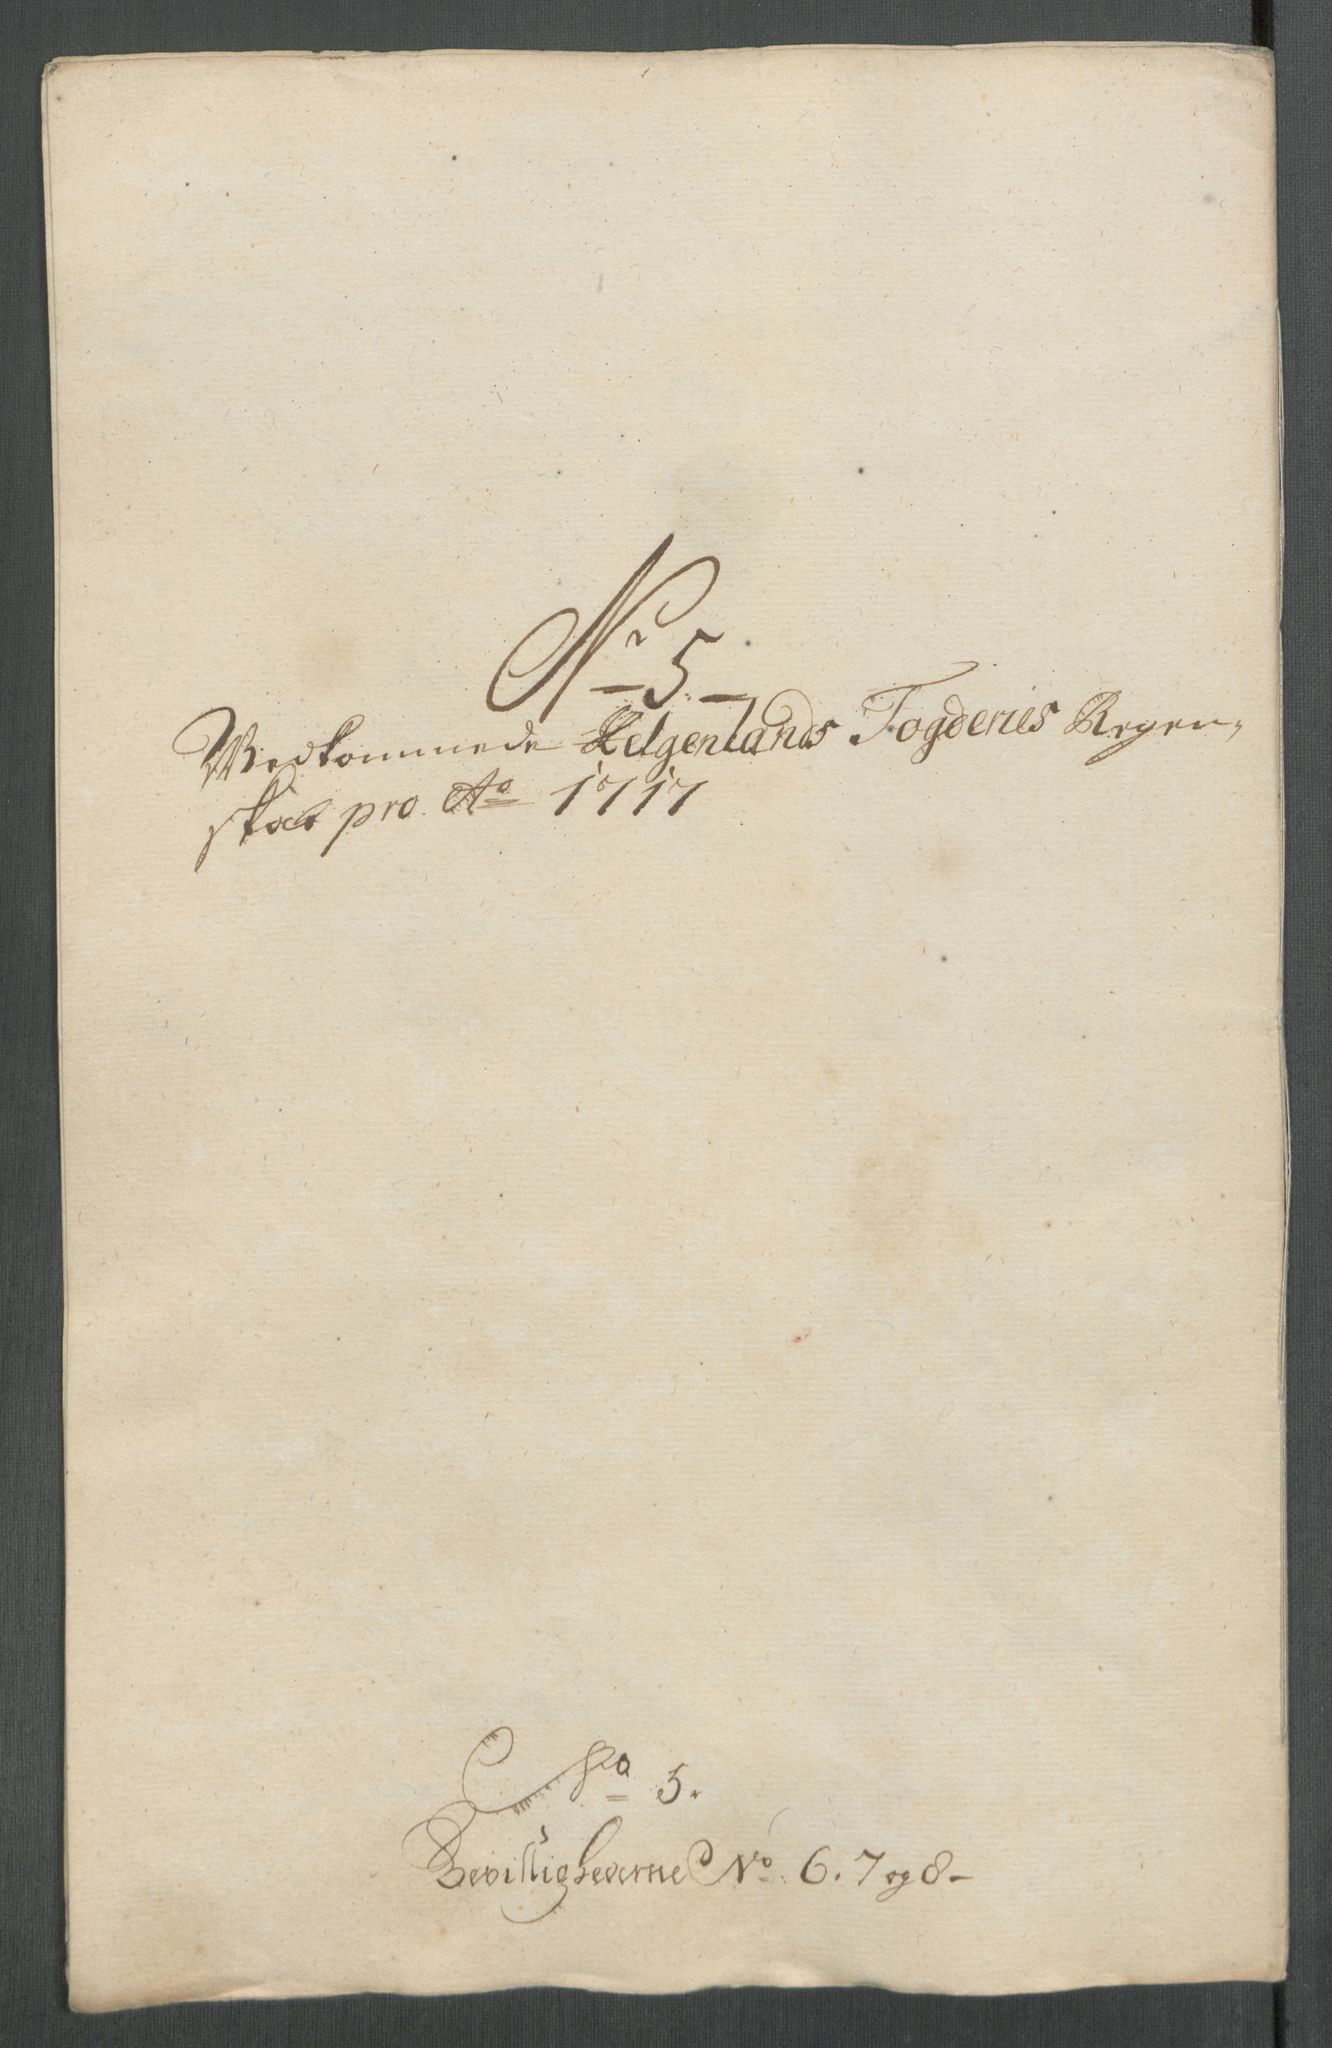 Nr 5
Wedkommede Helgenlands Fogderies Regen-
skab pro Ao 1717
No 5.
Bevilligheverne No 6. 7 og 8-